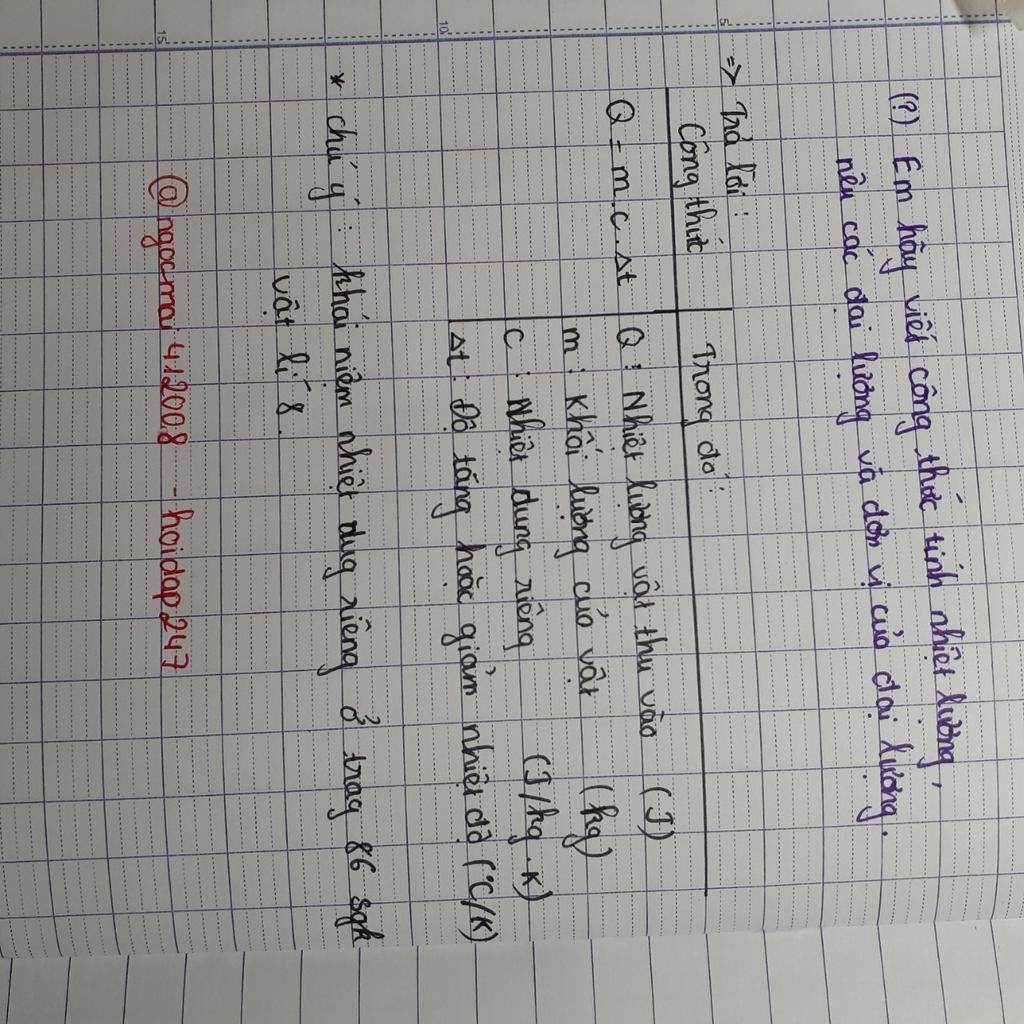 (?) Em hãy viết công thức tính nhiệt lượng,
nêu các đại lượng và đơn vị của đại lượng.
=> Trả lời:
Công thức
Trong đó:
Q = m.c.Δt
Q: Nhiệt lượng vật thu vào (J)
m: Khối lượng của vật (kg)
c: Nhiệt dung riêng (J/kg.K)
Δt: Độ tăng hoặc giảm nhiệt độ (°C/K)
* chú ý: khái niệm nhiệt dug riêng ở trag 86 sgk
vật lí 8.
@ngocmai412008 - hoidap247
5
10
15